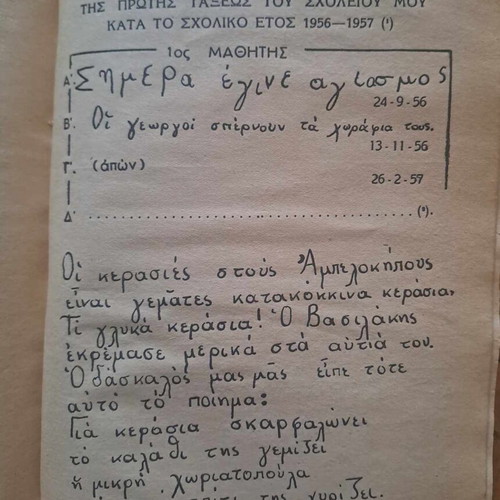 ΤΗΣ ΠΡΩΤΗΣ ΤΑΞΕΩΣ ΤΟΥ ΣΧΟΛΕΙΟΥ ΜΟΥ
ΚΑΤΑ ΤΟ ΣΧΟΛΙΚΟ ΕΤΟΣ 1956—1957 (¹)
1ος ΜΑΘΗΤΗΣ
Α'. Σημερα έγινε αγιασμος
24-9-56
Β'. Οἱ γεωργοί σπέρνουν τά χωράφια τους.
13-11-56
Γ'. (ἀπών)
26-2-57
Δ' ........................................ (²).
Οἱ κερασιές στούς Ἀμπελοκήπους
εἶναι γεμᾶτες κατακόκκινα κεράσια,
Τί γλυκά κεράσια! Ὁ Βασιλάκης
ἐκρέμασε μερικά στά αὐτιά του.
Ὁ δάσκαλός μας μᾶς εἶπε τότε
αὐτό τό ποίημα:
Γιά κεράσια σκαρφαλώνει
τό καλάθι της γεμίζει
ἡ μικρή χωριατοπούλα
σπίτι της γυρίζει.